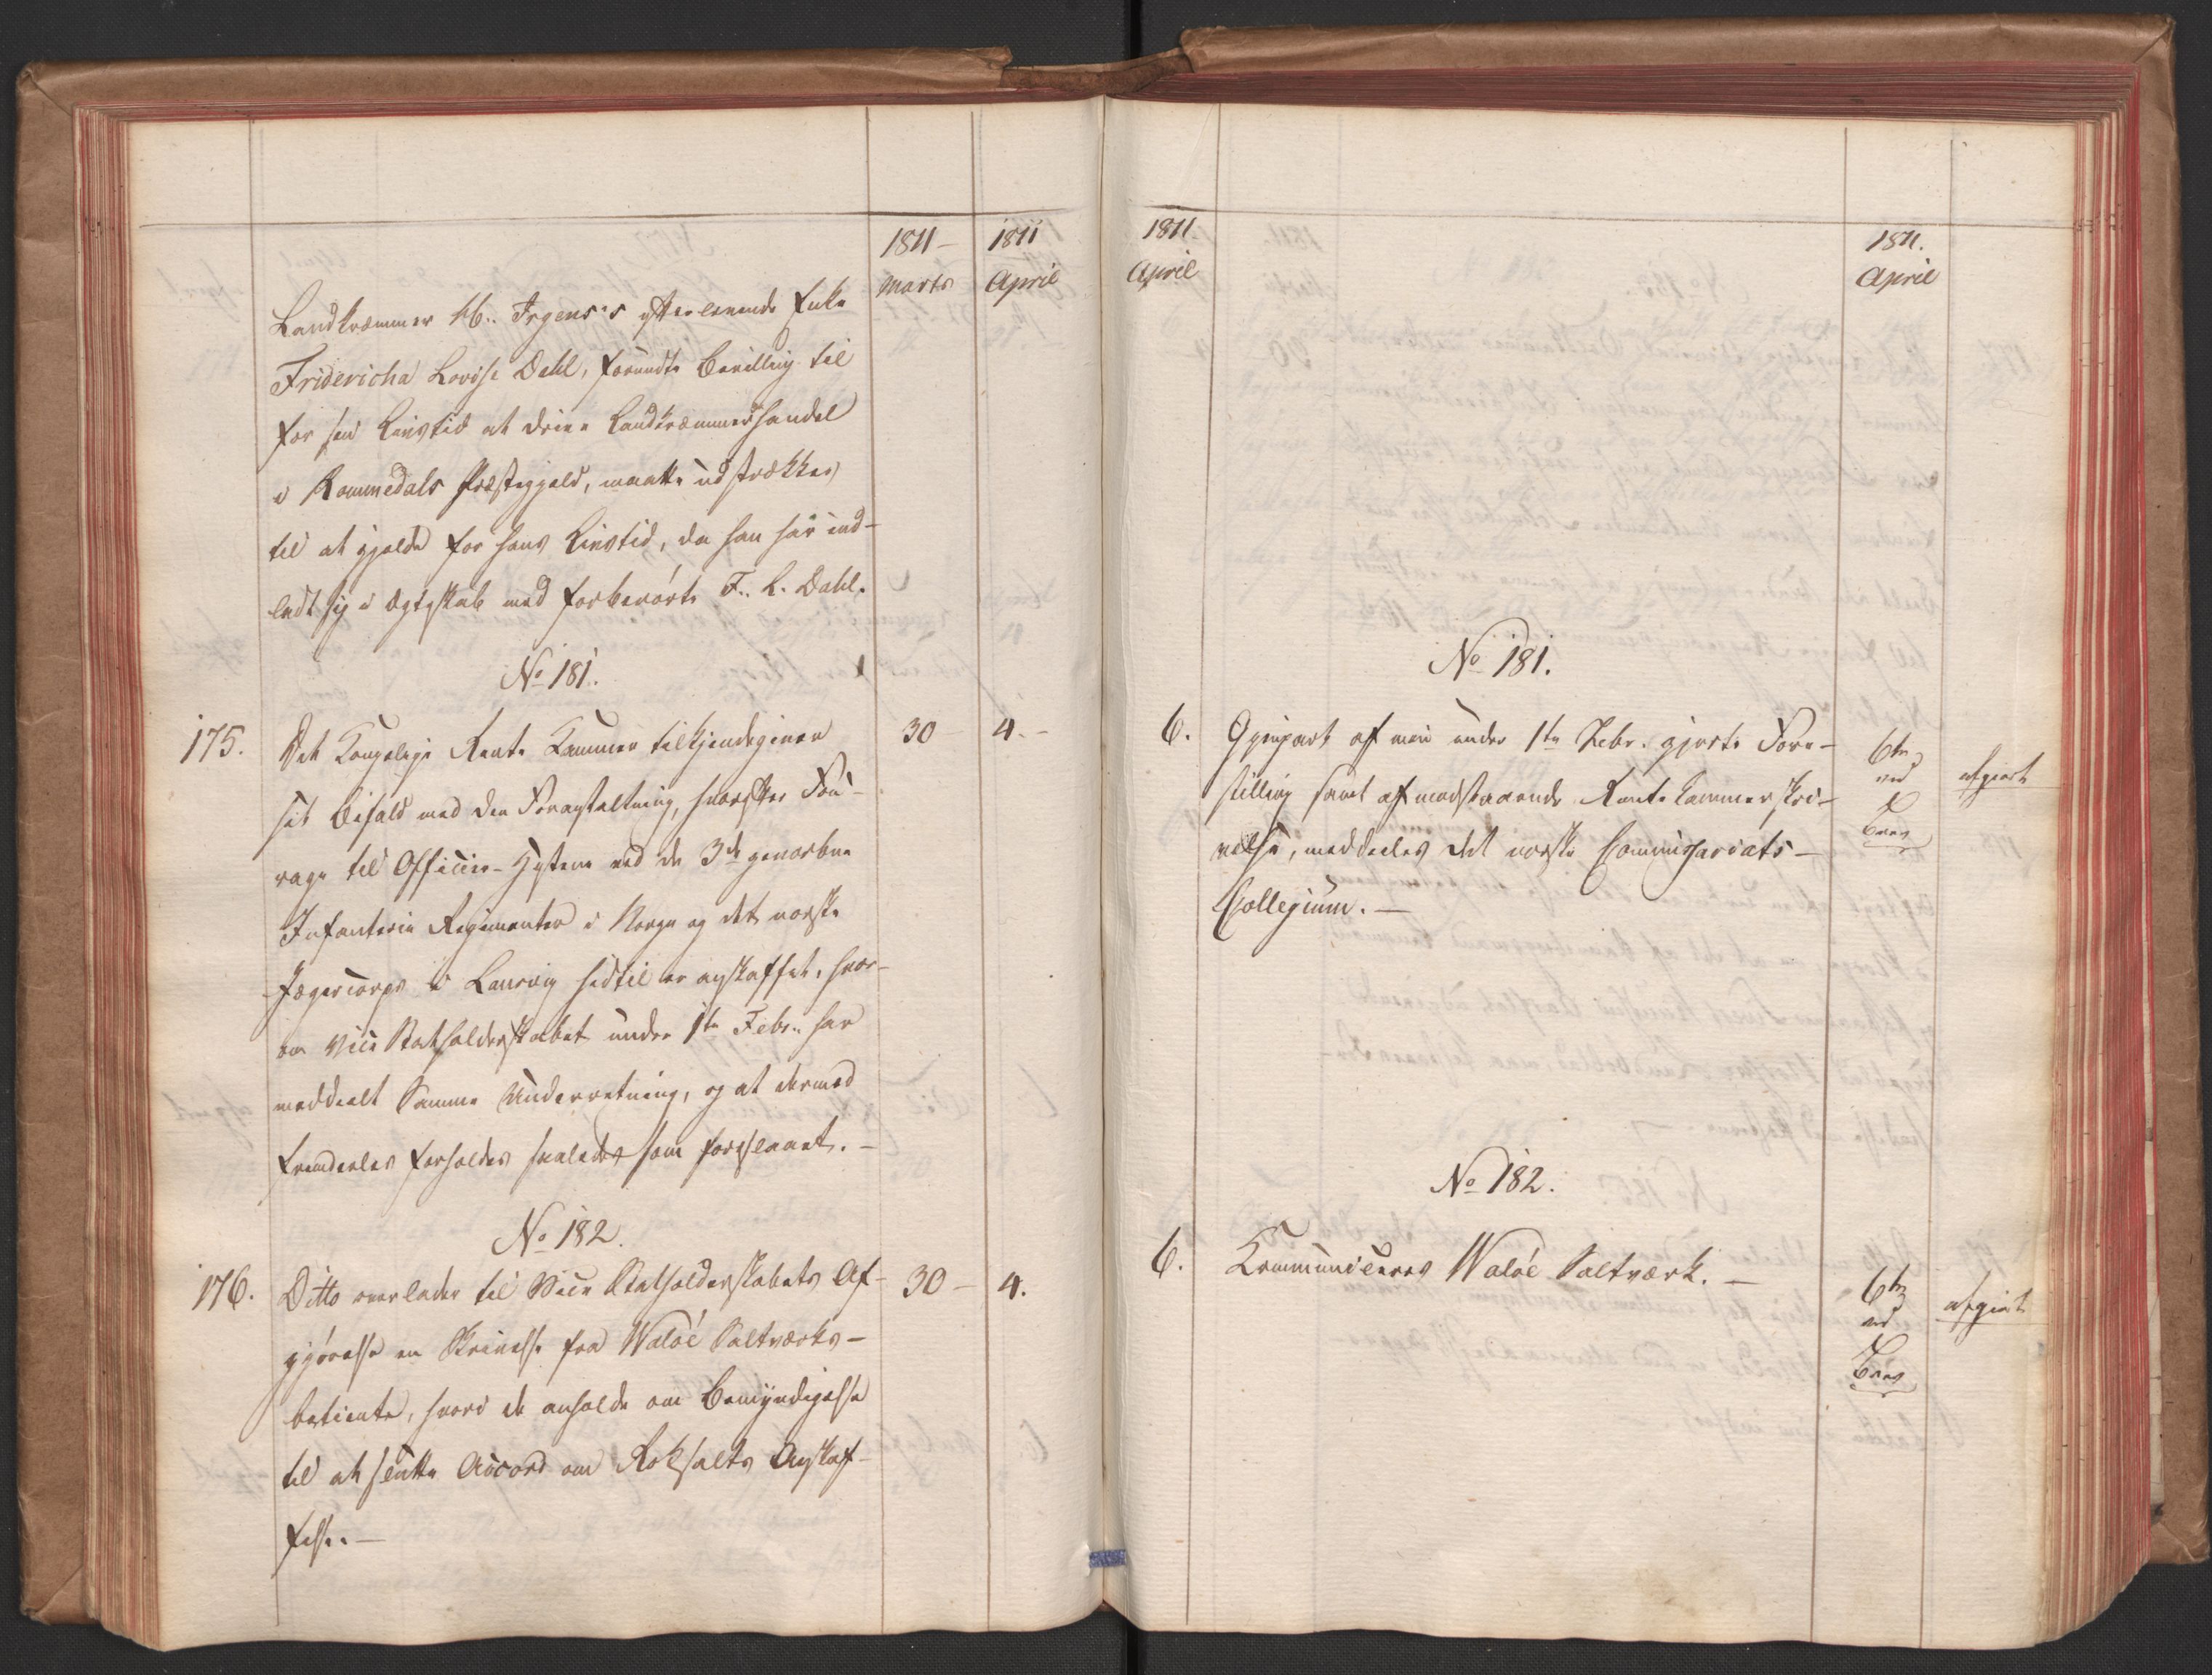 1811 –
Marts
1811
April
Landkræmmer M.. Irgens's efterlevende Enke
Fridericha Lovise Dahl, forundte Bevilling til
for sin Livstid at drive Landkræmmerhandel
i Rommedals Præstegjeld, maatte udstrækkes
til at gjelde for hans Livstid, da han har ind-
ladt sig i Ægteskab med forberørte F.. L. Dahl.
No 181.
175.
Det Kongelige Rente Kammer tilkjendegiver
30 –
4. –
sit Bifald med den Foranstaltning, hvorefter Fou-
rage til Officier-Hestene ved de 3de gevorbne
Infanterie Regimenter i Norge og det norske
Jægercorps i Laurvig hidtil er anskaffet, hvor-
om Vice Statholderskabet under 1te Febr.. har
meddeelt Samme Underretning, og at dermed
fremdeles forholdes saaledes som foreslaaet. –
No 182.
176.
Ditto overlader til Vice Statholderskabets Af-
30 –
4.
gjørelse en Skrivelse fra Waløe Saltværks-
betiente, hvori de anholde om Bemyndigelse
til at slutte Accord om Koksalts Anskaf-
felse. –
1811
April
1811.
April
No 181.
6.
Gjenpart af min under 1te Febr. gjorte Fore-
stilling samt af modstaaende Rente Kammer Skri-
velse, meddeles det norske Commissariats-
Collegium. –
6te
ved
Brev
afgiort
No 182.
6.
Kommuniceres Waløe Saltværk. –
6te
ved
Brev
afgiort